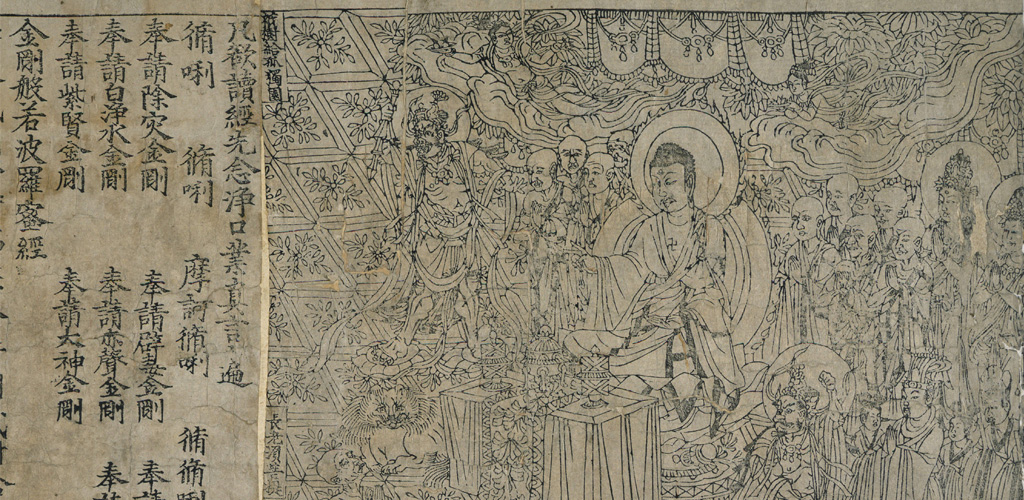 祇樹給孤獨園
長老須菩提
凡欲讀經先念淨口業真言一遍
脩唎 脩唎 摩訶脩唎 脩脩唎
奉請除灾金剛 奉請辟毒金剛 奉請
奉請白淨水金剛 奉請赤聲金剛 奉
奉請紫賢金剛 奉請大神金剛
金剛般若波羅蜜經